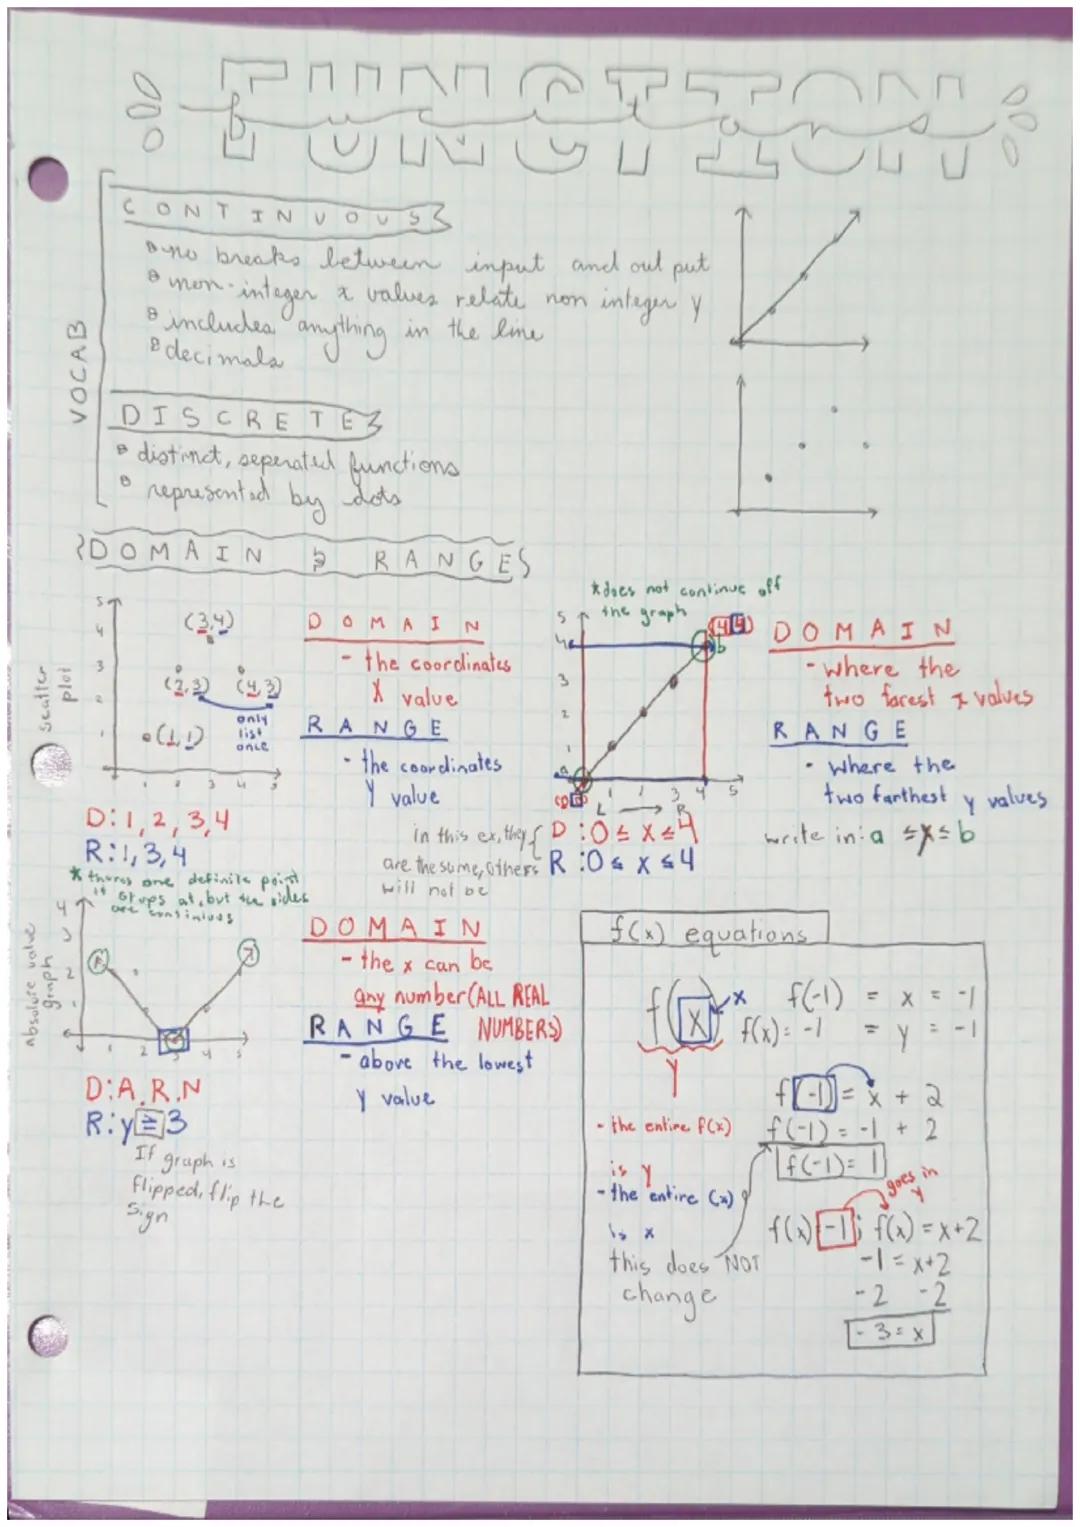 FUNCTION
VOCAB
CONTINUOUS
no breaks between input and out put
non-integer x values relate non integer y
includes anything in the line
decimals
DISCRETE
distinct, seperated functions
represented by dots
DOMAIN & RANGE
scatter plot
5
4
3
2
1
(3,4)
(2,3) (4,3)
only
list
once
(1,1)
1 2 3 4 5
D: 1, 2, 3, 4
R: 1, 3, 4
DOMAIN
- the coordinates
X value
RANGE
- the coordinates
Y value
*does not continue off
the graph
5
4
3
2
1
a
b
3 4 5
L → R
in this ex, they
are the same, others
will not be
D: 0 ≤ x ≤ 4
R: 0 ≤ x ≤ 4
DOMAIN
- where the
two farest x values
RANGE
- where the
two farthest y values
write in: a ≤ x ≤ b
* theres one definite point
it stops at, but the sides
are continuous
Absolute value
graph
4
3
2
1
1 2 3 4 5
D: A.R.N
R: y ≥ 3
If graph is
flipped, flip the
sign
DOMAIN
- the x can be
any number (ALL REAL
NUMBERS)
RANGE
- above the lowest
y value
f(x) equations
f(x)
x
y
f(-1) = x = -1
f(x) = -1 = y = -1
- the entire f(x)
is y
- the entire (x)
is x
this does NOT
change
f(-1) = x + 2
f(-1) = -1 + 2
f(-1) = 1
goes in
y
f(x) = -1; f(x) = x+2
-1 = x+2
-2 -2
-3 = x